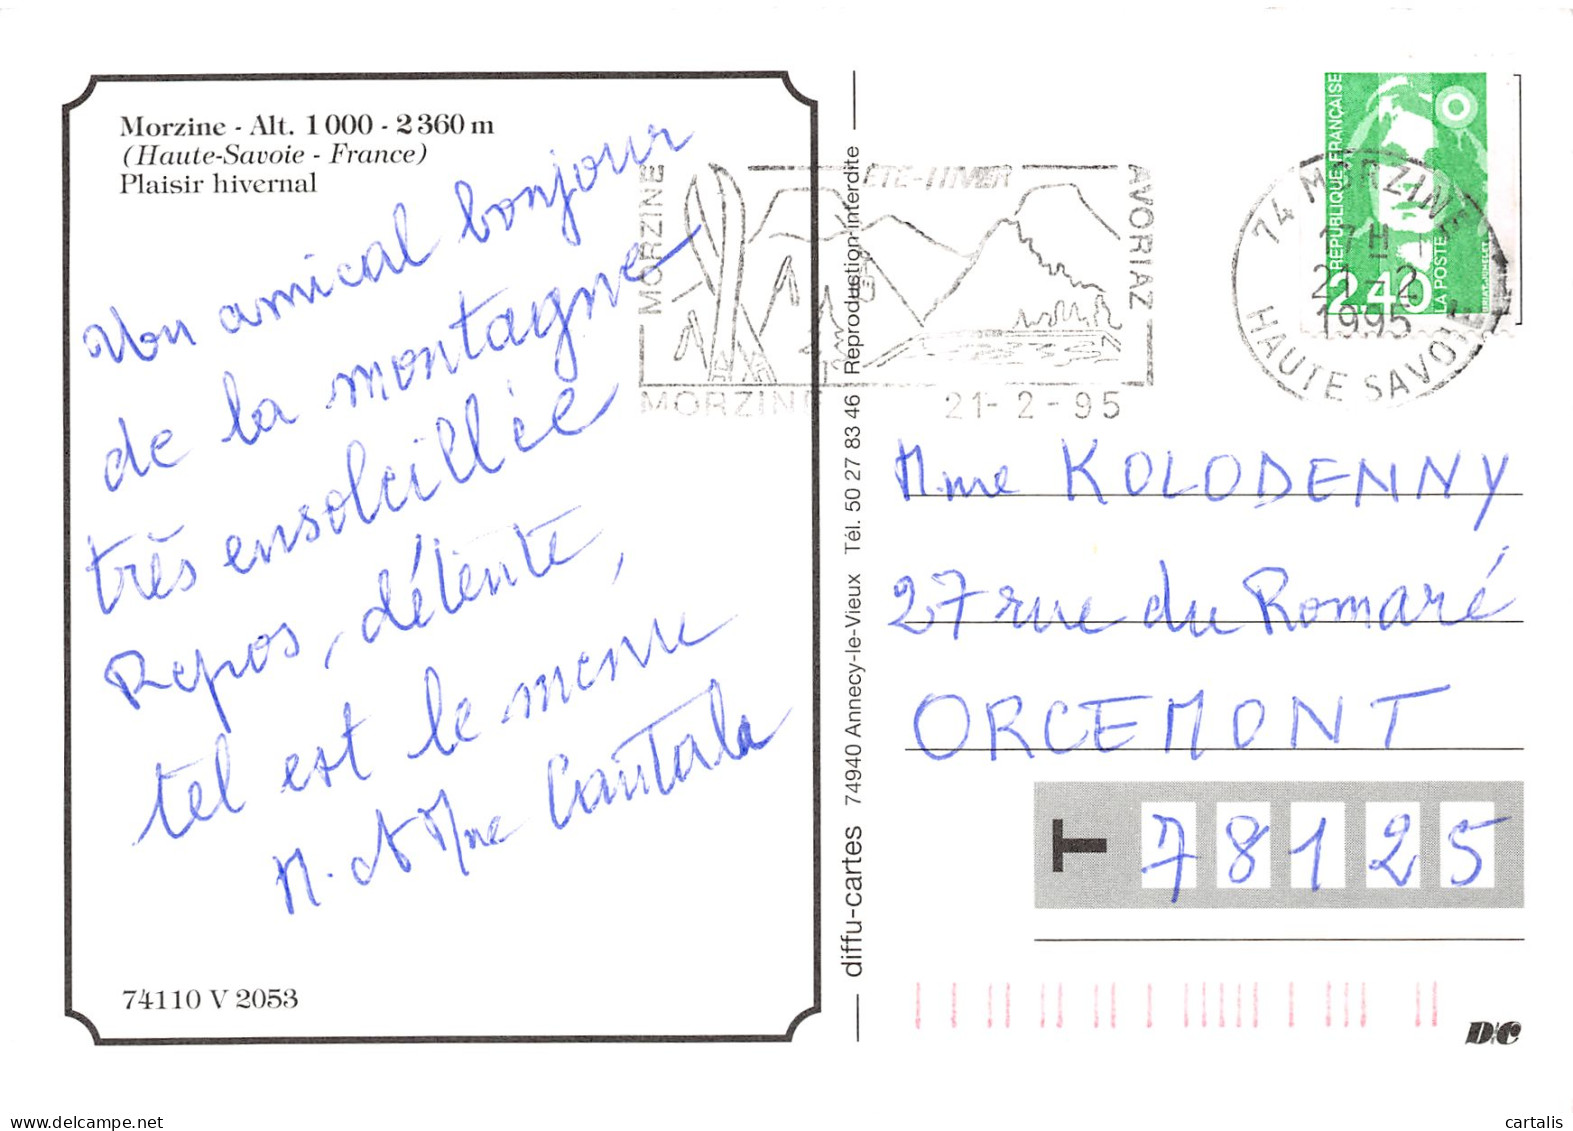 Morzine - Alt. 1000 - 2360 m
(Haute-Savoie - France)
Plaisir hivernal
Un amical bonjour
de la montagne
très ensoleillée
Repos, détente,
tel est le menu
M. et Mme Cantala
74110 V 2053
diffu-cartes 74940 Annecy-le-Vieux Tél. 50 27 83 46 Reproduction interdite
MORZINE
ETE-HIVER
AVORIAZ
MORZINE 21-2-95
RÉPUBLIQUE FRANÇAISE
2,40
LA POSTE
74 MORZINE
17H
21-2
1995
HAUTE SAVOIE
Mme KOLODENNY
27 rue du Romaré
ORCEMONT
T 78125
D/C
delcampe.net
cartalis